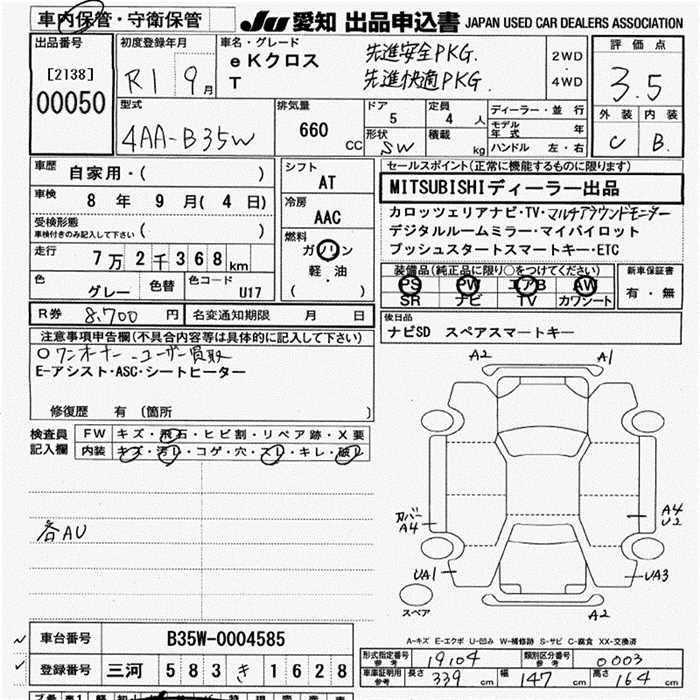 車内保管・守衛保管
JU 愛知 出品申込書 JAPAN USED CAR DEALERS ASSOCIATION
出品番号
[2138]
00050
初度登録年月
R1 9月
車名・グレード
eKクロス
T
先進安全PKG.
先進快適PKG.
2WD
・
4WD
評価点
3.5
外装 内装
C B.
型式
4AA-B35W
排気量
660 CC
ドア
5
定員
4 人
形状
SW
積載
kg
ディーラー・並行
モデル年式 年
ハンドル 左・右
車歴
自家用・( )
車検
8 年 9 月( 4 日)
受検形態
車検付きのみ記入して下さい ( )
走行
7万2千368km
色
グレー
色替
色コード
U17
シフト
AT
冷房
AAC
燃料
ガソリン
軽・油
( )
セールスポイント(正常に機能するものに限ります)
MITSUBISHIディーラー出品
カロッツェリアナビ・TV・マルチアラウンドモニター
デジタルルームミラー・マイパイロット
プッシュスタートスマートキー・ETC
装備品(純正品に限り○をつけてください)
PS PW エアB AW
SR ナビ TV カワシート
新車保証書
有・無
R券 8,700 円
名変通知期限 月 日
後日品
ナビSD スペアスマートキー
注意事項申告欄(不具合内容等は具体的に記入して下さい)
○ワンオーナー・ユーザー買取
E-アシスト・ASC・シートヒーター
修復歴 有(箇所 )
検査員記入欄
FW キズ・飛石・ヒビ割・リペア跡・X要
内装 キズ・汚レ・コゲ・穴・スレ・キレ・破レ
各AU
A2 A1
カバー
A4
A4
U2
UA1 UA3
スペア
A2
A-キズ E-エクボ U-凹み W-補修跡 S-サビ C-腐食 XX-交換済
車台番号 B35W-0004585
登録番号 三河 583 き 1628
形式指定番号 参考 19104
類別区分番号 参考 0003
車庫証明用参考 長さ 339 cm 幅 147 cm 高さ 164 cm